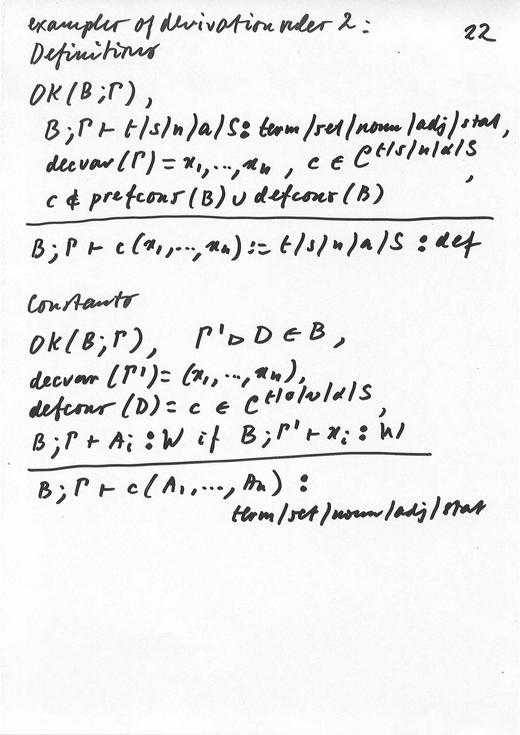 examples of derivation rules 2:
22
Definitions
OK(B;Γ),
B;Γ ⊢ t/s/n/a/S: term/set/noun/adj/stat,
decvar(Γ) = x₁,...,xₙ , c ∈ C^t/s/n/a/S ,
c ∉ prefcons(B) ∪ defcons(B)
B;Γ ⊢ c(x₁,...,xₙ) := t/s/n/a/S : def
Constants
OK(B;Γ), Γ' ▷ D ∈ B ,
decvar(Γ') = (x₁,...,xₙ),
defcons(D) = c ∈ C^t/σ/ν/α/S ,
B;Γ ⊢ Aᵢ : W if B;Γ' ⊢ xᵢ : W
B;Γ ⊢ c(A₁,...,Aₙ) :
term/set/noun/adj/stat